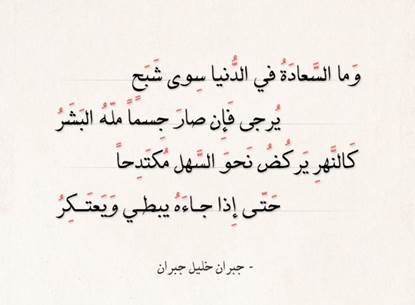 وَما السَّعادَةُ في الدُّنيا سِوى شَبَحٍ
يُرجى فَإِن صارَ جِسماً مَلّهُ البَشَرُ
كَالنَّهرِ يَركُضُ نَحوَ السَّهل مُكتَدِحاً
حَتّى إِذا جاءَهُ يبطي وَيَعتَكِرُ
- جبران خليل جبران